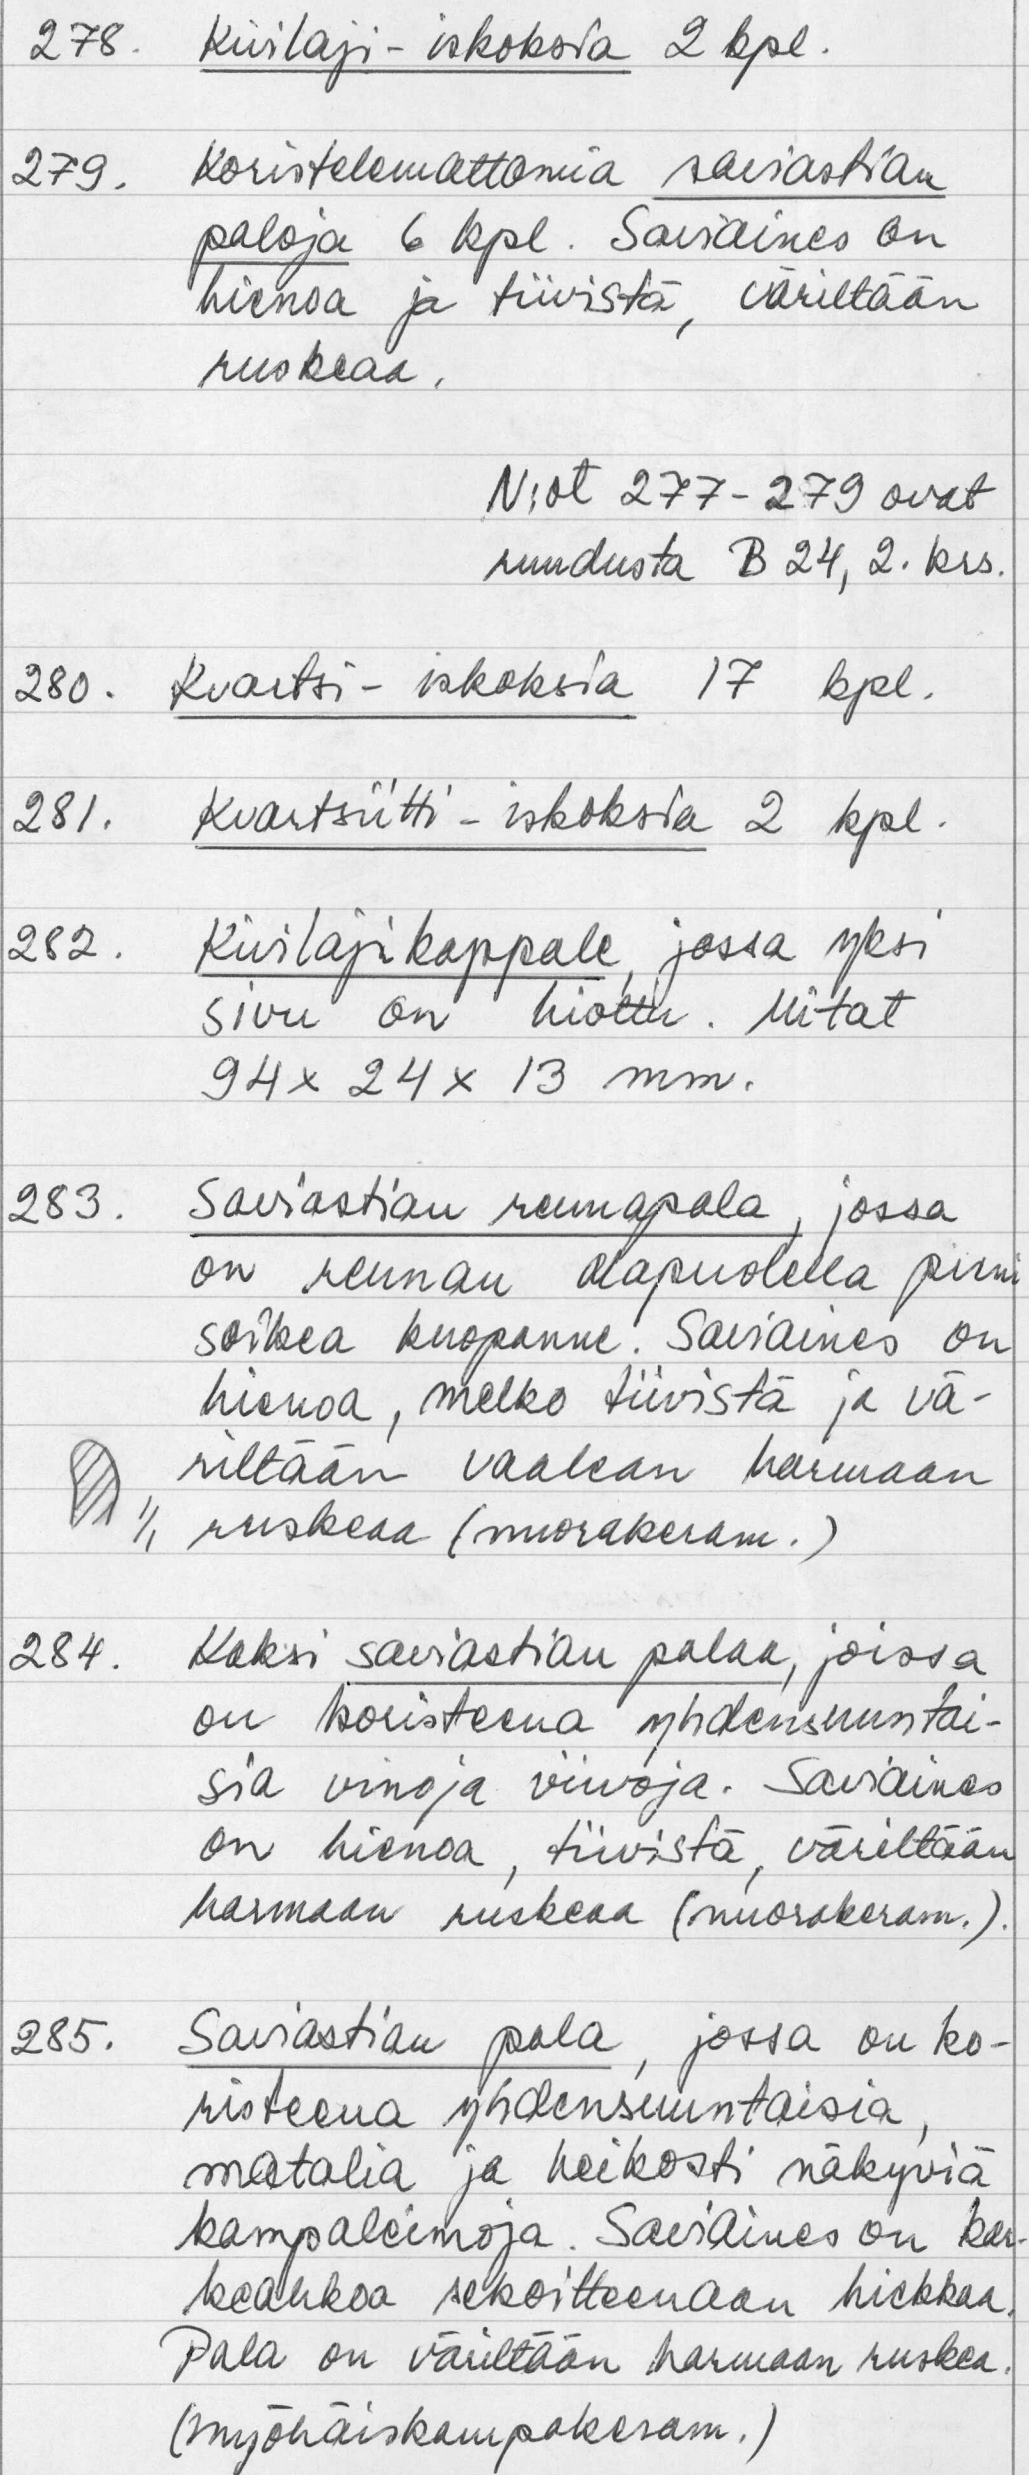 278. Kivilaji-iskoksia 2 kpl.
279. Koristelemattomia saviastian
paloja 6 kpl. Saviaines on
hienoa ja tiivistä, väriltään
ruskeaa.
N:ot 277-279 ovat
ruudusta B 24, 2. krs.
280. Kvartsi-iskoksia 17 kpl.
281. Kvartsiitti-iskoksia 2 kpl.
282. Kivilajikappale, jossa yksi
sivu on hiottu. Mitat
94 x 24 x 13 mm.
283. Saviastian reunapala, jossa
on reunan alapuolella pieni
soikea kuopanne. Saviaines on
hienoa, melko tiivistä ja vä-
riltään vaalean harmaan
1/1 ruskeaa (nuorakeram.)
284. Kaksi saviastian palaa, joissa
on koristeena yhdensuuntai-
sia vinoja viivoja. Saviaines
on hienoa, tiivistä, väriltään
harmaan ruskeaa (nuorakeram.).
285. Saviastian pala, jossa on ko-
risteena yhdensuuntaisia,
matalia ja heikosti näkyviä
kampaleimoja. Saviaines on kar-
keahkoa sekoitteenaan hiekkaa.
Pala on väriltään harmaan ruskea.
(myöhäiskampakeram.)